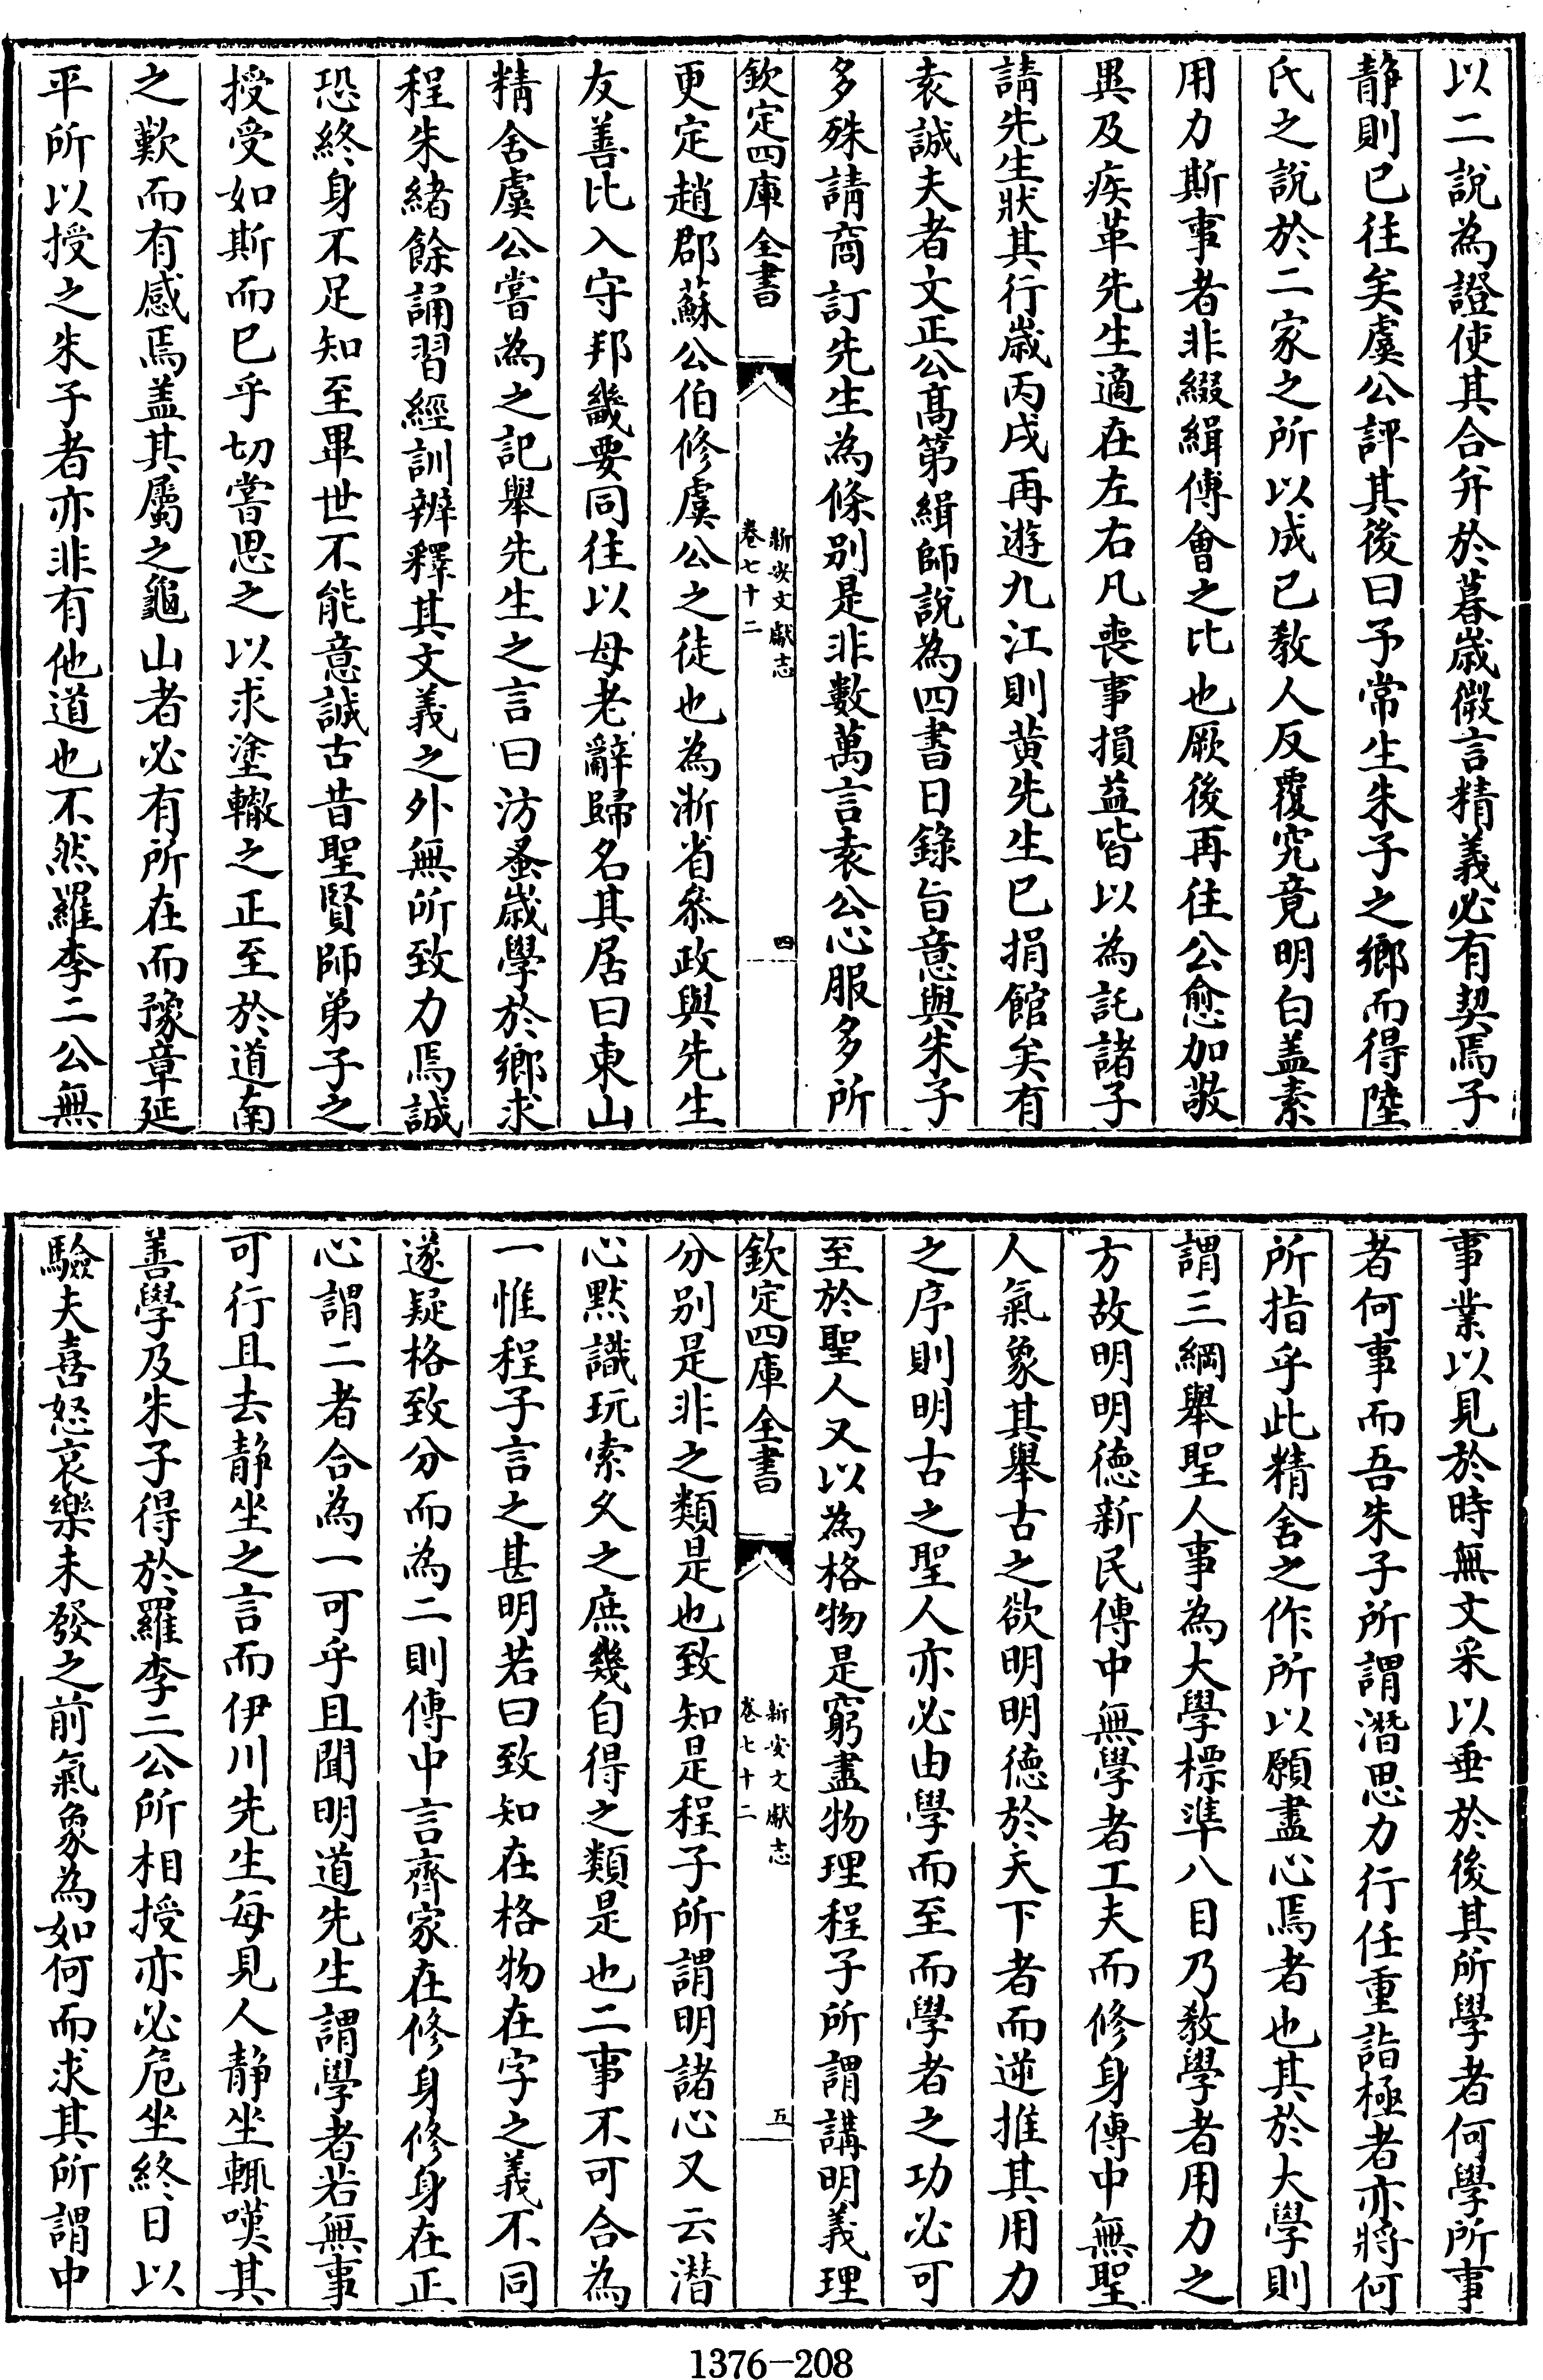 以二說為證使其合并於暮歲微言精義必有契焉子
静則已往矣虞公評其後曰予常生朱子之鄉而得陸
氏之說於二家之所以成已教人反覆究竟明白盖素
用力斯事者非綴緝傅會之比也厥後再往公愈加敬
異及疾革先生適在左右凡喪事損益皆以為託諸子
請先生狀其行歲丙戌再遊九江則黄先生已捐館矣有
袁誠夫者文正公髙第緝師說為四書日錄旨意與朱子
多殊請商訂先生為條别是非數萬言袁公心服多所
欽定四庫全書
新安文獻志
卷七十二
四
更定趙郡蘇公伯修虞公之徒也為浙省叅政與先生
友善比入守邦畿要同往以母老辭歸名其居曰東山
精舍虞公嘗為之記舉先生之言曰汸蚤歲學於鄉求
程朱緒餘誦習經訓辨釋其文義之外無所致力焉誠
恐終身不足知至畢世不能意誠古昔聖賢師弟子之
授受如斯而已乎切嘗思之以求塗轍之正至於道南
之歎而有感焉盖其屬之龜山者必有所在而豫章延
平所以授之朱子者亦非有他道也不然羅李二公無
事業以見於時無文采以垂於後其所學者何學所事
者何事而吾朱子所謂潛思力行任重詣極者亦將何
所指乎此精舍之作所以願盡心焉者也其於大學則
謂三綱舉聖人事為大學標準八目乃教學者用力之
方故明明德新民傳中無學者工夫而修身傳中無聖
人氣象其舉古之欲明明德於天下者而逆推其用力
之序則明古之聖人亦必由學而至而學者之功必可
至於聖人又以為格物是窮盡物理程子所謂講明義理
欽定四庫全書
新安文獻志
卷七十二
五
分别是非之類是也致知是程子所謂明諸心又云潛
心黙識玩索乆之庶幾自得之類是也二事不可合為
一惟程子言之甚明若曰致知在格物在字之義不同
遂疑格致分而為二則傳中言齊家在修身修身在正
心謂二者合為一可乎且聞明道先生謂學者若無事
可行且去静坐之言而伊川先生每見人静坐輒嘆其
善學及朱子得於羅李二公所相授亦必危坐終日以
驗夫喜怒哀樂未發之前氣象為如何而求其所謂中
1376-208